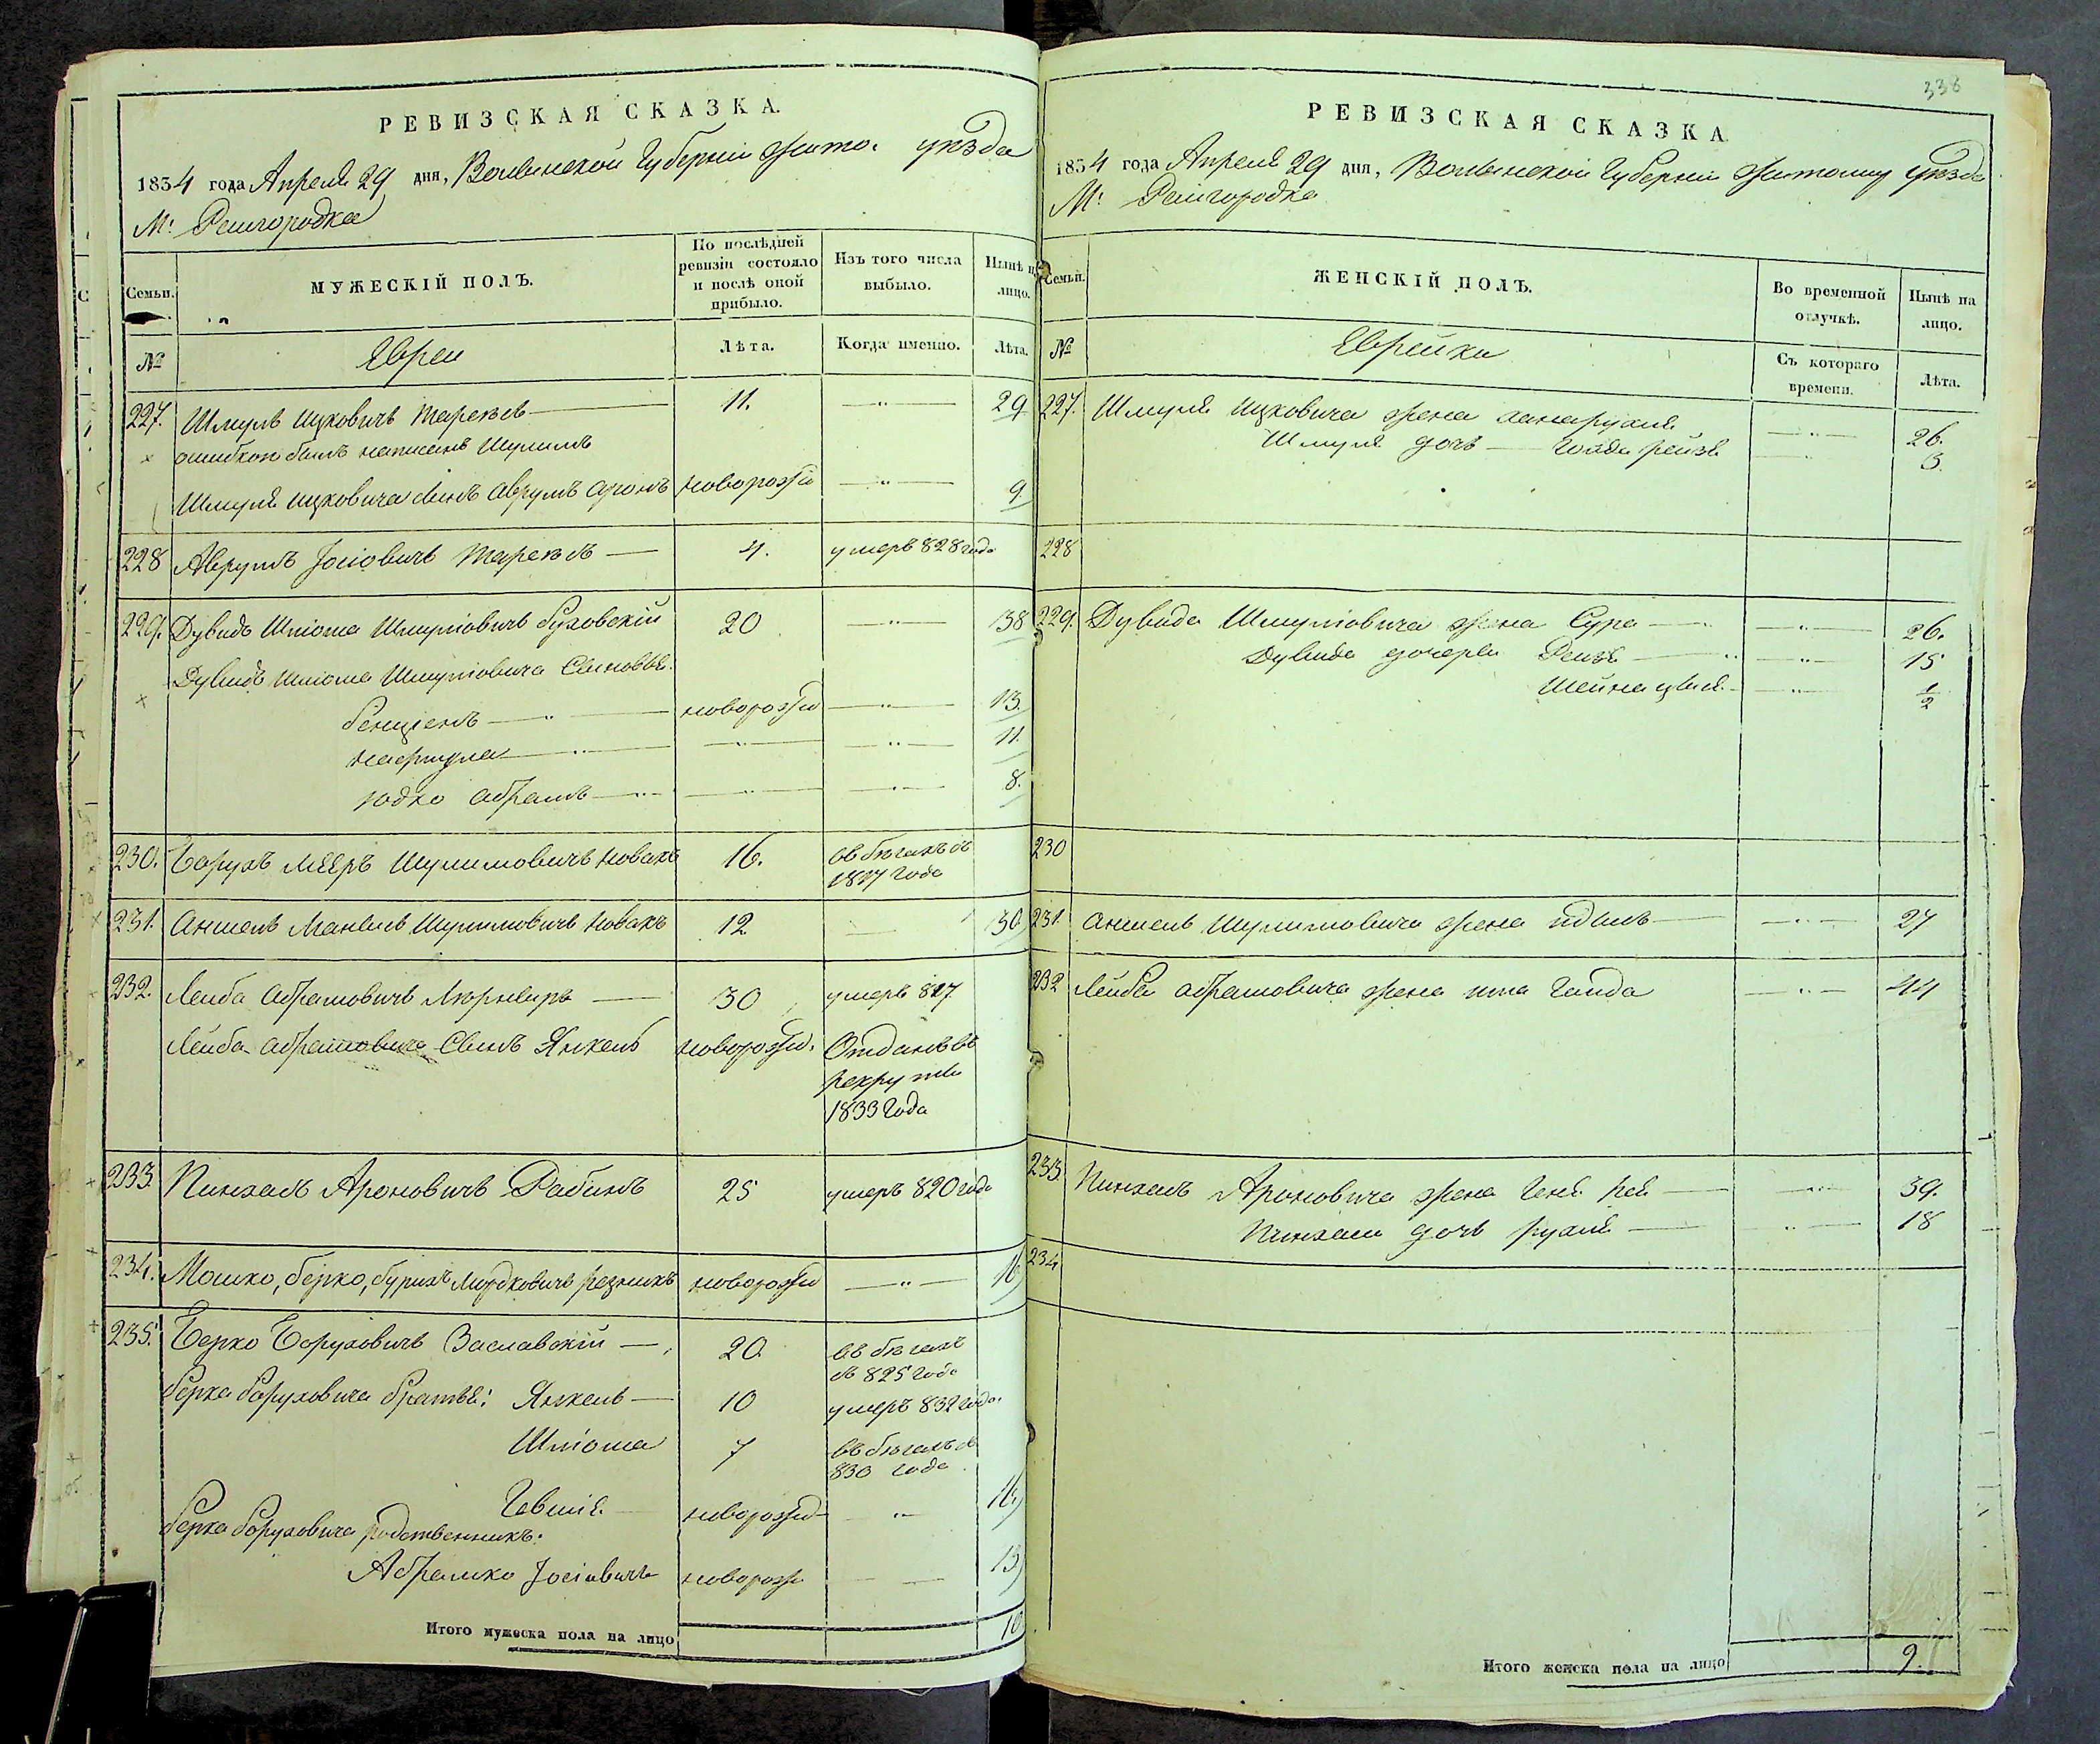 РЕВИЗСКАЯ СКАЗКА.
1834 года Апреля 29 дня, Волынской Губерніи Жито. уезда
М: Рейгородка
Семьи.
МУЖЕСКІЙ ПОЛЪ.
По послѣдней ревизіи состояло и послѣ оной прибыло.
Изъ того числа выбыло.
Нынѣ на лицо.
№
Евреи
Лѣта.
Когда именно.
Лѣта.
227. Шмуль Ицковичъ 11. 29
ошибкою былъ написанъ Шулимъ
Шмуля Ицковича сынъ Аврумъ Аронъ новорожд 9
228 Аврумъ Іосіовичъ 4. умеръ 828 года
229. Дувидъ Шліома Шмуліовичъ Буховскій 20 38
Дувидъ Шліома Шмуліовича Сыновья.
Бенціенъ новорожд 13.
Нафтула 11.
Юдко Абрамъ 8.
230. Борухъ Мееръ Шулимовичъ Новакъ 16. въ бѣгахъ съ
1827 года
231. Аншель Манысъ Шулимовичъ Новакъ 12 30
232. Лейба Абрамовичъ 30 умеръ 827.
Лейба Абрамовича Сынъ Янкель новорожд. Отданъ въ
рекруты
1833 года
233. Пинхасъ Ароновичъ Рабинъ 25 умеръ 820 года
234. Мошко, Берко, Бурихъ Мордковичъ Резникъ новорожд 16
235. Берко Боруховичъ Заславскій 20 въ бѣгахъ
съ 825 года
Берка Боруховича братья: Янкель 10 умеръ 832 года.
Шліома 7 въ бѣгахъ съ
830 года
Гевшія новорожд 16
Берка Боруховича родственникъ:
Абрамко Іосіовичъ новорожд 13
Итого мужеска пола на лицо 10
338
РЕВИЗСКАЯ СКАЗКА
1834 года Апреля 29 дня, Волынской Губерніи Житомир уезда
М: Рейгородка
Семьи.
ЖЕНСКІЙ ПОЛЪ.
Во временной отлучкѣ.
Нынѣ на лицо.
№
Еврейки
Съ котораго времени.
Лѣта.
227. Шмуля Ицковича жена Ханарухля 26.
Шмуля дочь Голда Рейзя 3.
228
229. Дувида Шмуліовича жена Сура 26.
Дувида дочери Рейзя 15
Шейна Цвія 1/2
230
231. Аншель Шулимовича жена Идысъ 27
232 Лейба Абрамовича жена Ита Голда 44
233. Пинхасъ Ароновича жена Геня Рея 39.
Пинхаса дочь Рухля 18
234
Итого женска пола на лицо 9.